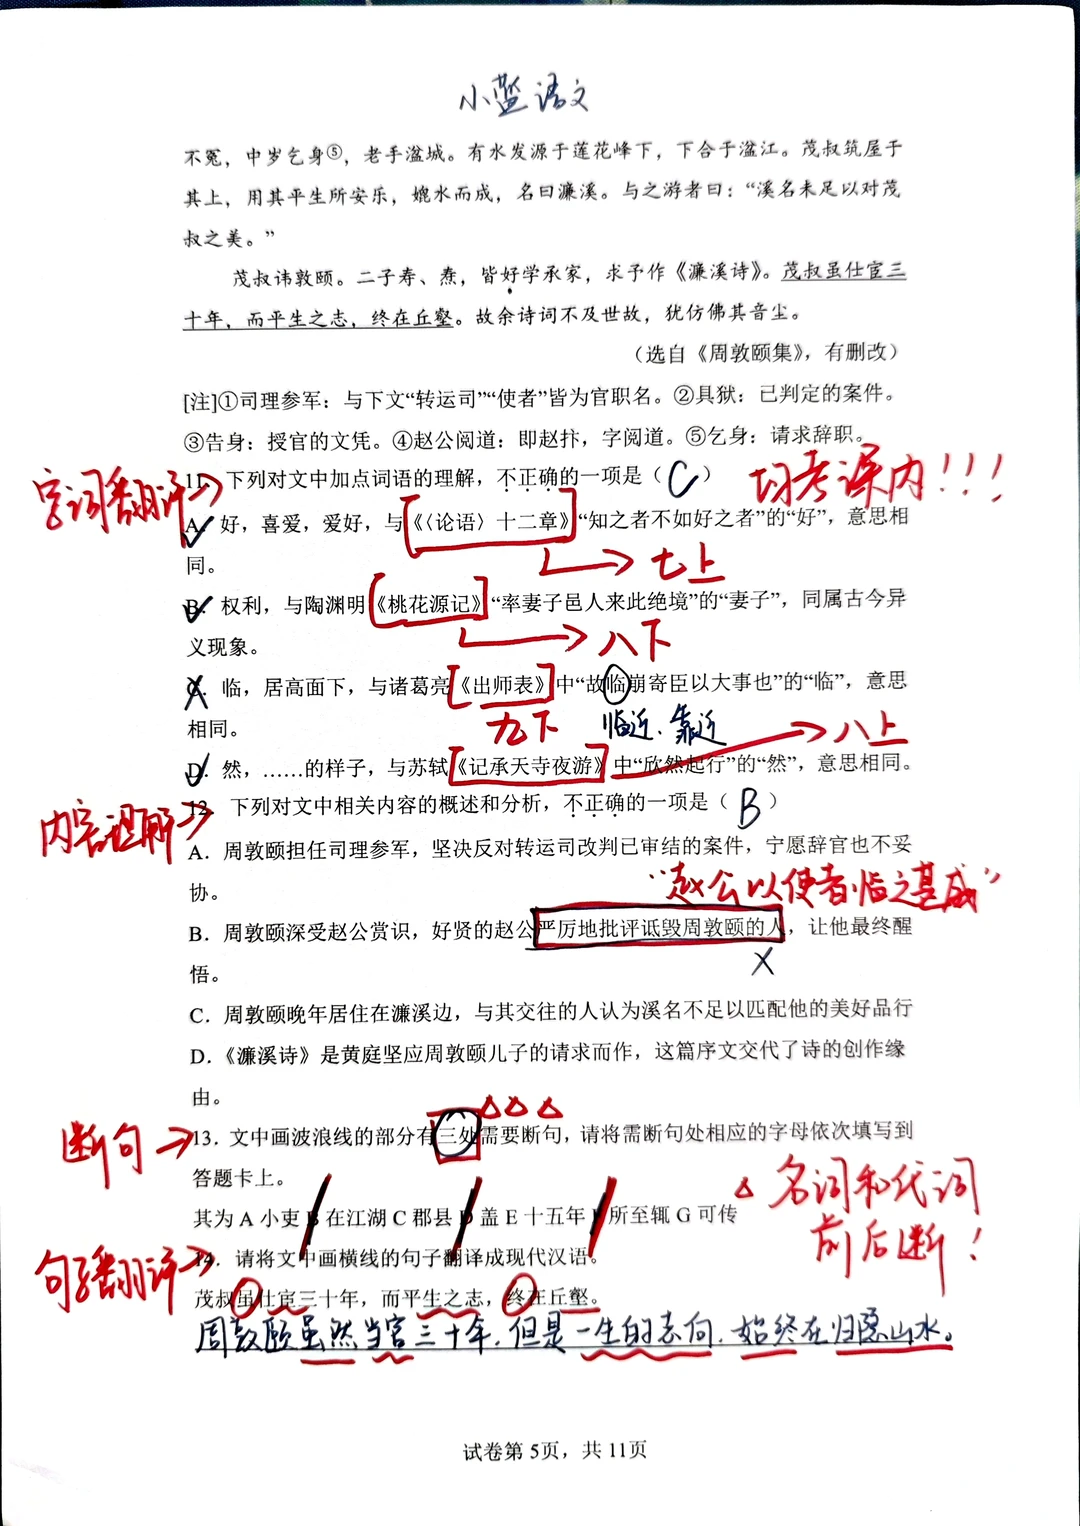 小蓝语文
不冤，中岁乞身⑤，老于湓城。有水发源于莲花峰下，下合于湓江。茂叔筑屋于
其上，用其平生所安乐，媲水而成，名曰濂溪。与之游者曰：“溪名未足以对茂
叔之美。”
茂叔讳敦颐。二子寿、焘，皆好学承家，求予作《濂溪诗》。茂叔虽仕宦三
十年，而平生之志，终在丘壑。故余诗词不及世故，犹仿佛其音尘。
（选自《周敦颐集》，有删改）
[注]①司理参军：与下文“转运司”“使者”皆为官职名。②具狱：已判定的案件。
③告身：授官的文凭。④赵公阅道：即赵抃，字阅道。⑤乞身：请求辞职。
字词翻译→
11．下列对文中加点词语的理解，不正确的一项是（ C ）
均考课内!!!
A．好，喜爱，爱好，与《〈论语〉十二章》“知之者不如好之者”的“好”，意思相
同。
→七上
B．权利，与陶渊明《桃花源记》“率妻子邑人来此绝境”的“妻子”，同属古今异
义现象。
→八下
C．临，居高面下，与诸葛亮《出师表》中“故临崩寄臣以大事也”的“临”，意思
相同。
九下
临近、靠近
→八上
D．然，……的样子，与苏轼《记承天寺夜游》中“欣然起行”的“然”，意思相同。
内容理解→
12．下列对文中相关内容的概述和分析，不正确的一项是（ B ）
A．周敦颐担任司理参军，坚决反对转运司改判已审结的案件，宁愿辞官也不妥
协。
“赵公以使者临之甚威”
B．周敦颐深受赵公赏识，好贤的赵公严厉地批评诋毁周敦颐的人，让他最终醒
悟。
X
C．周敦颐晚年居住在濂溪边，与其交往的人认为溪名不足以匹配他的美好品行
D．《濂溪诗》是黄庭坚应周敦颐儿子的请求而作，这篇序文交代了诗的创作缘
由。
断句→
13．文中画波浪线的部分有三处需要断句，请将需断句处相应的字母依次填写到
答题卡上。
其为 A 小吏 B 在江湖 C 郡县 D 盖 E 十五年 F 所至辄 G 可传
△名词和代词
前后断！
句子翻译→
14．请将文中画横线的句子翻译成现代汉语。
茂叔虽仕宦三十年，而平生之志，终在丘壑。
周敦颐虽然当官三十年，但是一生的志向，始终在归隐山水。
试卷第 5页，共 11页